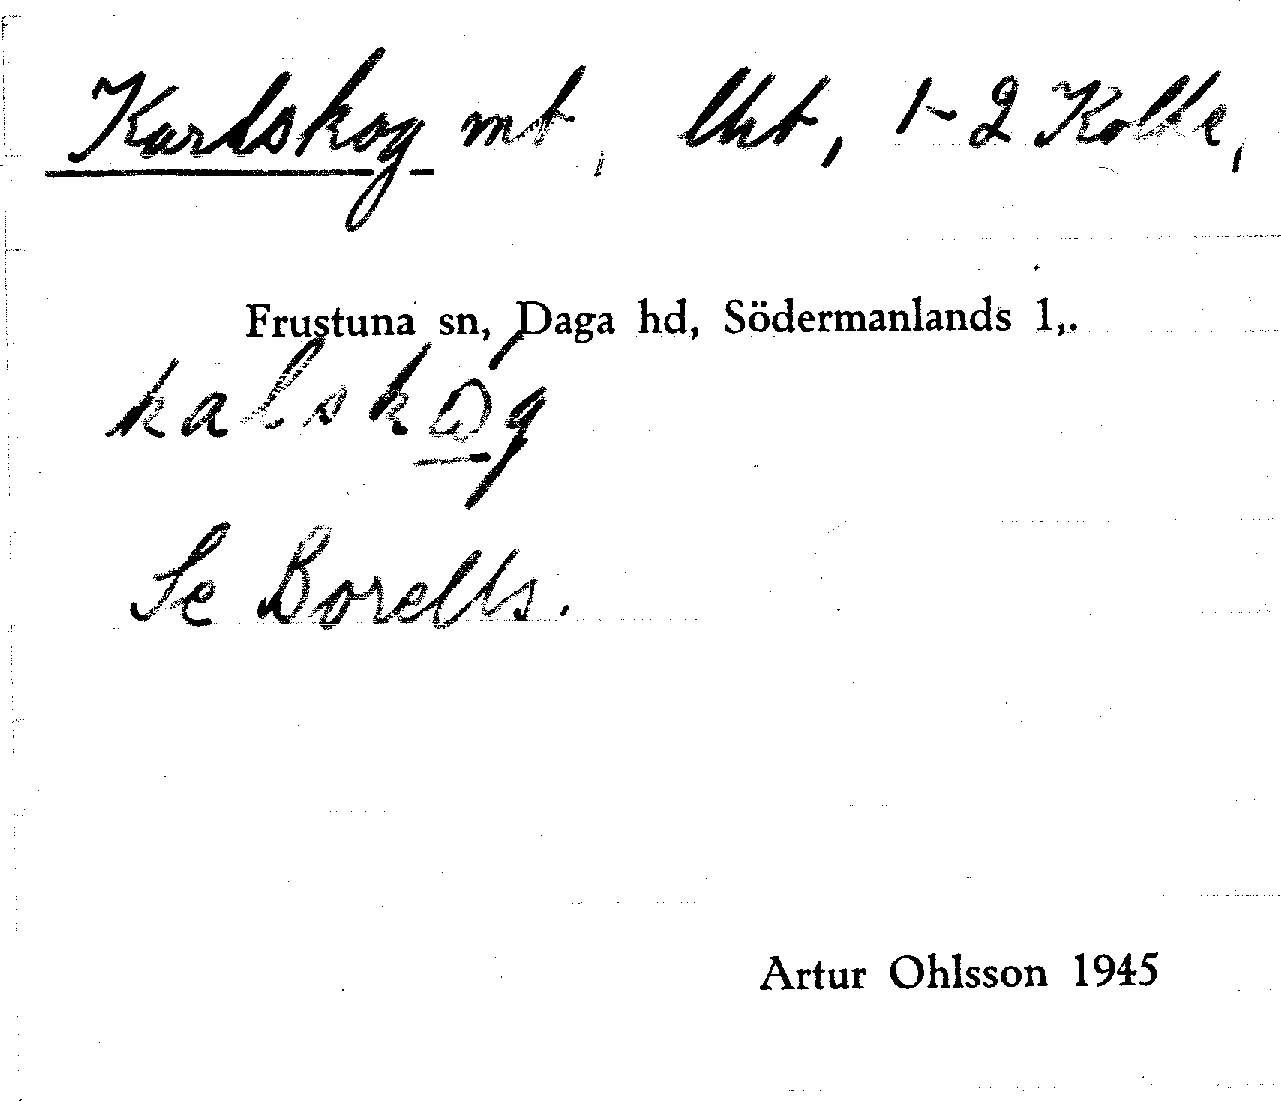 Karlskog mt, lht, 1-2 Kolbe,
Frustuna sn, Daga hd, Södermanlands l,.
kalskog
Se Borells.
Artur Ohlsson 1945